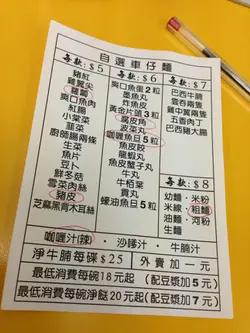 自選車仔麵
每款:$5
豬紅
雞翼尖
蘿蔔
爽口魚肉
紅腸
小棠菜
韮菜
廚師腸兩條
生菜
魚片
豆卜
鮮冬菇
雪菜肉絲
豬皮
芝麻黑背木耳絲
每款:$6
爽口魚蛋2粒
墨魚丸
炸魚皮
黃金片頭3粒
腐皮角
波菜丸
咖喱魚旦5粒
魚皮餃
龍蝦丸
魚皮蟹子丸
牛丸
牛栢葉
貢丸
蠔油魚旦5粒
每款:$7
巴西牛腩
雲吞兩隻
雞中翼兩隻
五香肉丁
巴西豬大腸
每款:$8
幼麵·米粉
米線·粗麵
油麵·河粉
生麵
咖喱汁(辣)·沙嗲汁·牛腩汁
淨牛腩每碟$25
外賣加一元
最低消費每碗18元起(配豆漿加7元)
最低消費每碗淨餸20元起(配豆漿加7元)